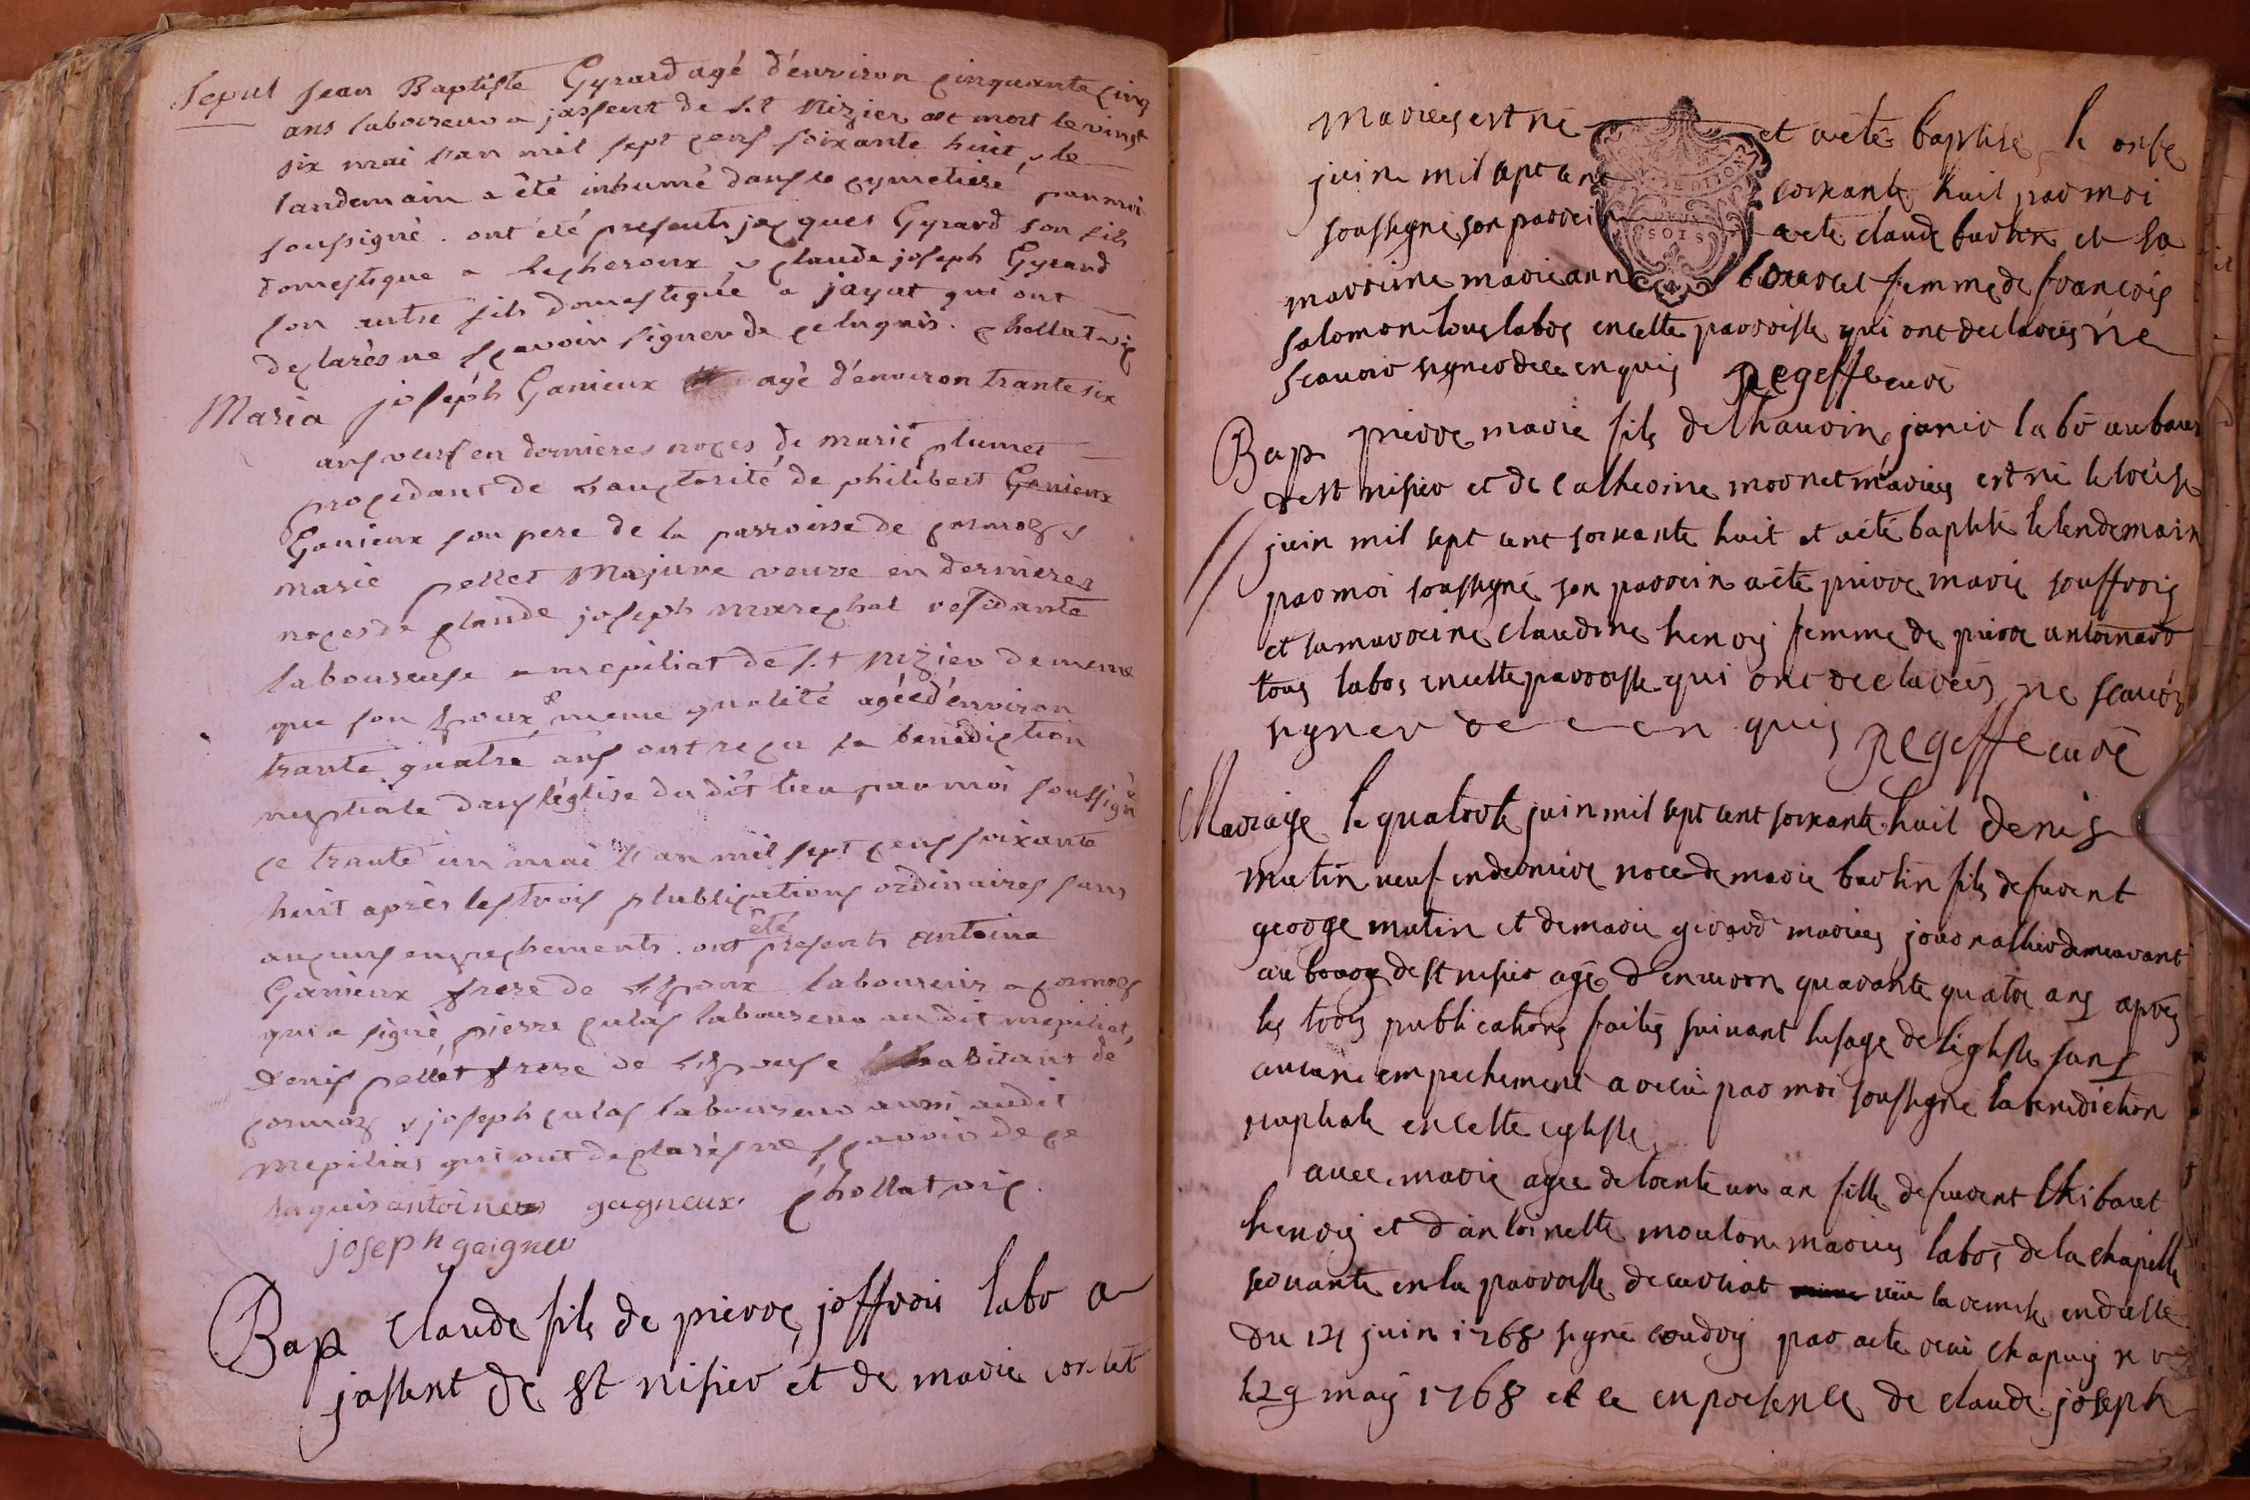 Sepul jean Baptiste Gyrard agé d'environ cinquante cinq
ans laboureur a jassent de s.t Nizier est mort le vingt
six mai l'an mil sept cens soixante huit, le
landemain a été inhumé dans le cymetiere par moi
soussigné. ont été presents jacques Gyrard son fils
domestique a lescheroux & claude joseph Gyrard
son autre fils domestique a jayat qui ont
declarès ne sçavoir signer de ce enquis. chollat vic
Maria joseph Ganieux agé d'environ trante six
ans veuf en dernieres noces de marie plumet
procedant de l'auctorité de philibert Ganieux
Ganieux son pere de la parroisse de cormoz &
marie pellet Majure veuve en dernieres
noces de claude joseph marechal residante
laboureuse a mepiliat de s.t Nizier de meme
que son époux meme qualité agée d'environ
trante quatre ans ont reçu la benediction
nuptiale dans l'église du dit lieu par moi soussigné
ce trante un mai l'an mil sept cens soixante
huit après les trois plublications ordinaires sans
aucuns empechements. ont été presents antoine
Ganieux frere de l'époux laboureur a cormoz
qui a signé, pierre culas laboureur au dit mepiliat,
denis pellet frere de l'épouse habitant de
cormoz & joseph culas laboureur aussi audit
mepiliat qui ont declarés ne sçavoir de ce
enquis antoine gagneux chollat vic.
joseph gaigneu
Bap claude fils de pierre joffrois labo a
jassent de st nisier et de marie contet
mariés est né et a été baptisé le onse
juin mil sept cent soixante huit par moi
soussigné son parrein a été claude burtin et sa
marreine marie ann femme de francois
salomon tous labos en cette parroisse qui ont declarés ne
scavoir signer de ce enquis pegeffe curé
Bap pierre marie fils de thauvin janier labo au bourg
de st nisier et de catherine mornet mariés est né le treise
juin mil sept cent soixante huit et a été baptisé le lendemain
par moi soussigné son parrein a été pierre marie jouffrois
et sa marreine claudine henris femme de pierre antoinard
tous labos en cette parroisse qui ont declarés ne scavoir
signer de ce enquis pegeffe curé
Mariage le quatorse juin mil sept cent soixante huit denis
mutin veuf en derniere noce de marie burtin fils de fuent
george mutin et de marie girard mariés journalhier demeurant
au bourg de st nisier agé d'environ quarante quatre ans après
les trois publications faites suivant lusage de léglise sans
aucune empechement a recu par moi soussigné la benediction
nuptiale en cette eglise
avec marie agée de trente un an fille de fuent thibaret
henris et d'antoinette mouton mariés labos de la chapelle
servante en la parroisse de curciat veu la remise en duste
du 12 juin 1768 signé coudois par acte recu chapuis n r
le 29 may 1768 et ce en presence de claude joseph